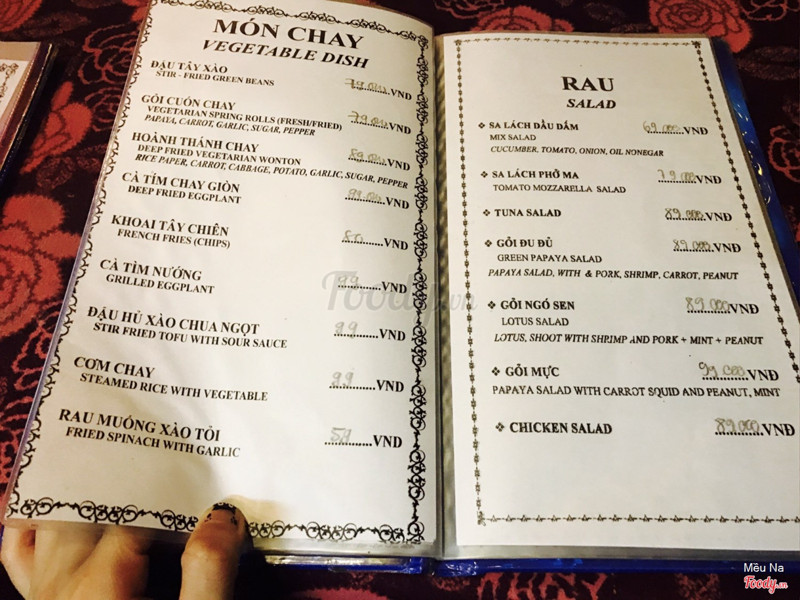 MÓN CHAY
VEGETABLE DISH
ĐẬU TÂY XÀO
STIR - FRIED GREEN BEANS
VNĐ
GỎI CUỐN CHAY
VEGETARIAN SPRING ROLLS (FRESH/FRIED)
79.000 VNĐ
PAPAYA, CARROT, GARLIC, SUGAR, PEPPER
HOÀNH THÁNH CHAY
DEEP FRIED VEGETARIAN WONTON
89.000 VNĐ
RICE PAPER, CARROT, CABBAGE, POTATO, GARLIC, SUGAR, PEPPER
CÀ TÍM CHAY GIÒN
DEEP FRIED EGGPLANT
VNĐ
KHOAI TÂY CHIÊN
FRENCH FRIES (CHIPS)
VNĐ
CÀ TÍM NƯỚNG
GRILLED EGGPLANT
VNĐ
ĐẬU HỦ XÀO CHUA NGỌT
STIR FRIED TOFU WITH SOUR SAUCE
VNĐ
CƠM CHAY
STEAMED RICE WITH VEGETABLE
VNĐ
RAU MUỐNG XÀO TỎI
FRIED SPINACH WITH GARLIC
VNĐ
RAU
SALAD
❖ SA LÁCH DẦU DẤM 69.000 VNĐ
MIX SALAD
CUCUMBER, TOMATO, ONION, OIL NONEGAR
❖ SA LÁCH PHỞ MA 79.000 VNĐ
TOMATO MOZZARELLA SALAD
❖ TUNA SALAD 89.000 VNĐ
❖ GỎI ĐU ĐỦ 89.000 VNĐ
GREEN PAPAYA SALAD
PAPAYA SALAD, WITH & PORK, SHRIMP, CARROT, PEANUT
❖ GỎI NGÓ SEN 89.000 VNĐ
LOTUS SALAD
LOTUS, SHOOT WITH SHRIMP AND PORK + MINT + PEANUT
❖ GỎI MỰC 99.000 VNĐ
PAPAYA SALAD WITH CARROT SQUID AND PEANUT, MINT
❖ CHICKEN SALAD 89.000 VNĐ
Foody.vn
Mều Na
Foody.vn